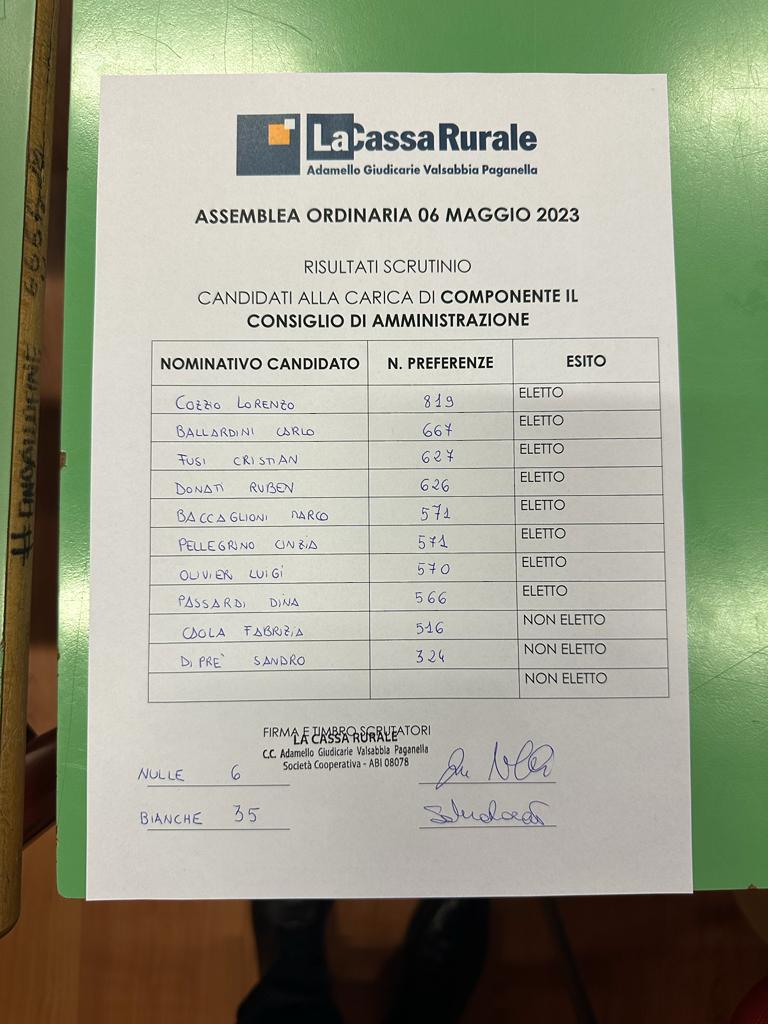 LaCassaRurale
Adamello Giudicarie Valsabbia Paganella
ASSEMBLEA ORDINARIA 06 MAGGIO 2023
RISULTATI SCRUTINIO
CANDIDATI ALLA CARICA DI COMPONENTE IL
CONSIGLIO DI AMMINISTRAZIONE
NOMINATIVO CANDIDATO N. PREFERENZE ESITO
COZZIO LORENZO 819 ELETTO
BALLARDINI CARLO 667 ELETTO
FUSI CRISTIAN 627 ELETTO
DONATI RUBEN 626 ELETTO
BACCAGLIONI MARCO 571 ELETTO
PELLEGRINO CINZIA 571 ELETTO
OLIVIERI LUIGI 570 ELETTO
PASSARDI DINA 566 ELETTO
CAOLA FABRIZIA 516 NON ELETTO
DI PRE' SANDRO 324 NON ELETTO
NON ELETTO
FIRMA E TIMBRO SCRUTATORI
LA CASSA RURALE
C.C. Adamello Giudicarie Valsabbia Paganella
Società Cooperativa - ABI 08078
NULLE 6
BIANCHE 35